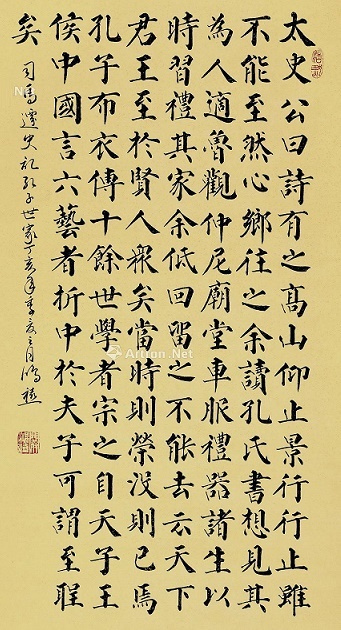 太史公曰詩有之高山仰止景行行止雖
不能至然心鄉往之余讀孔氏書想見其
為人適魯觀仲尼廟堂車服禮器諸生以
時習禮其家余低回留之不能去云天下
君王至於賢人眾矣當時則榮沒則已焉
孔子布衣傳十餘世學者宗之自天子王
侯中國言六藝者折中於夫子可謂至聖
矣
司馬遷史記孔子世家丁亥年季夏之月
Artron.Net